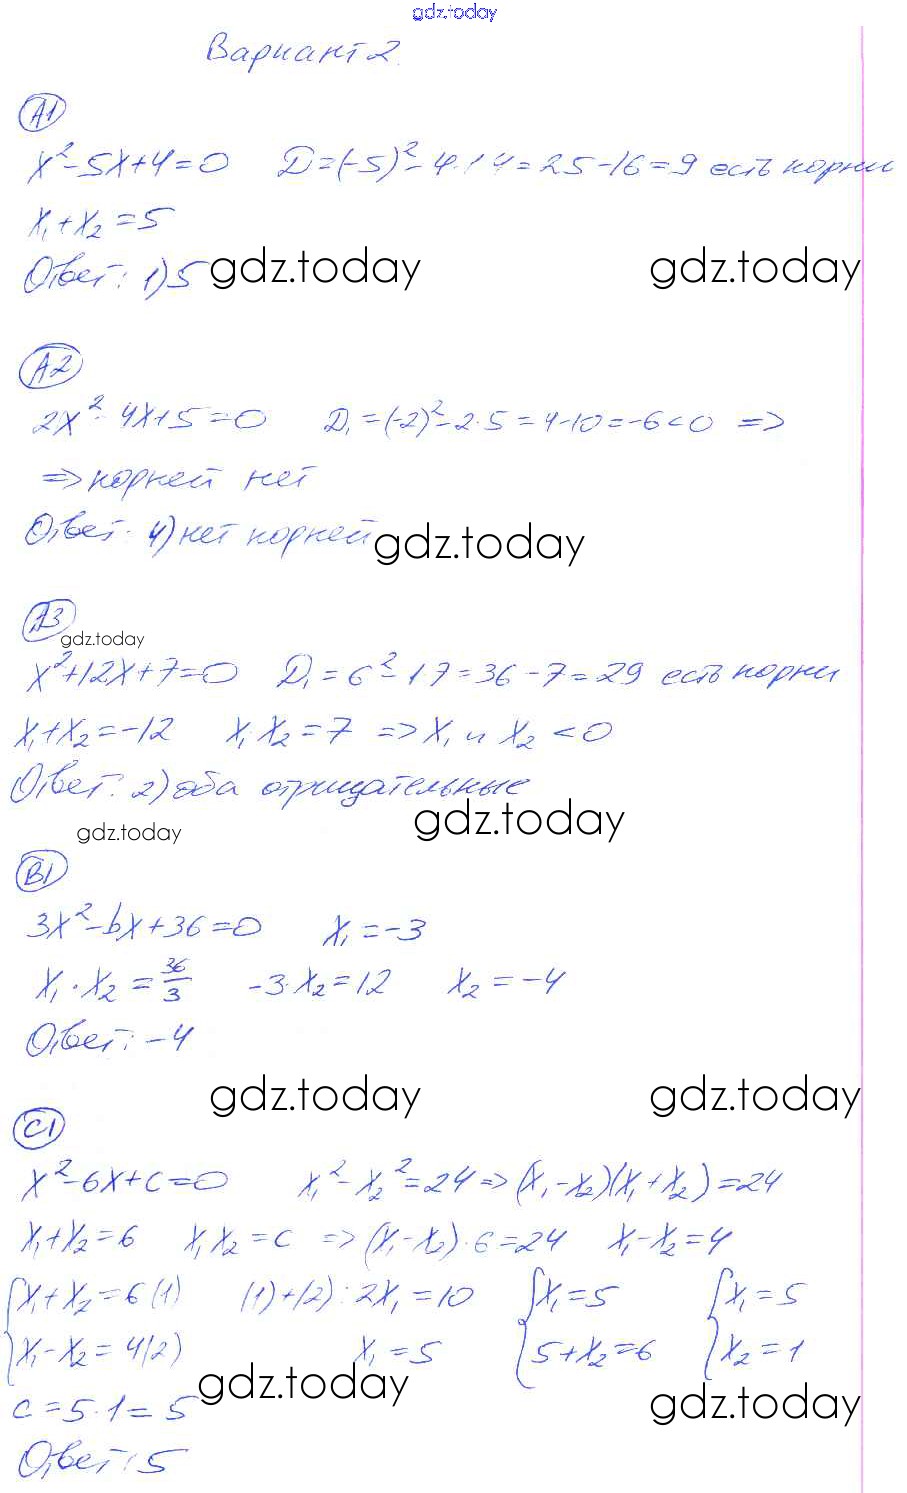 gdz.today
Вариант 2.
А1
x² - 5x + 4 = 0 D = (-5)² - 4·1·4 = 25 - 16 = 9 есть корни
x₁ + x₂ = 5
Ответ: 1) 5 gdz.today gdz.today
А2
2x² - 4x + 5 = 0 D₁ = (-2)² - 2·5 = 4 - 10 = -6 < 0 =>
=> корней нет
Ответ: 4) нет корней gdz.today
А3
gdz.today
x² + 12x + 7 = 0 D₁ = 6² - 1·7 = 36 - 7 = 29 есть корни
x₁ + x₂ = -12 x₁ x₂ = 7 => x₁ и x₂ < 0
Ответ: 2) оба отрицательные
gdz.today gdz.today
В1
3x² - bx + 36 = 0 x₁ = -3
x₁ · x₂ = 36/3 -3·x₂ = 12 x₂ = -4
Ответ: -4
gdz.today gdz.today
С1
x² - 6x + c = 0 x₁² - x₂² = 24 => (x₁ - x₂)(x₁ + x₂) = 24
x₁ + x₂ = 6 x₁ x₂ = c => (x₁ - x₂)·6 = 24 x₁ - x₂ = 4
{ x₁ + x₂ = 6 (1) (1) + (2): 2x₁ = 10 { x₁ = 5 { x₁ = 5
x₁ - x₂ = 4 (2) x₁ = 5 5 + x₂ = 6 x₂ = 1
gdz.today gdz.today
c = 5·1 = 5
Ответ: 5